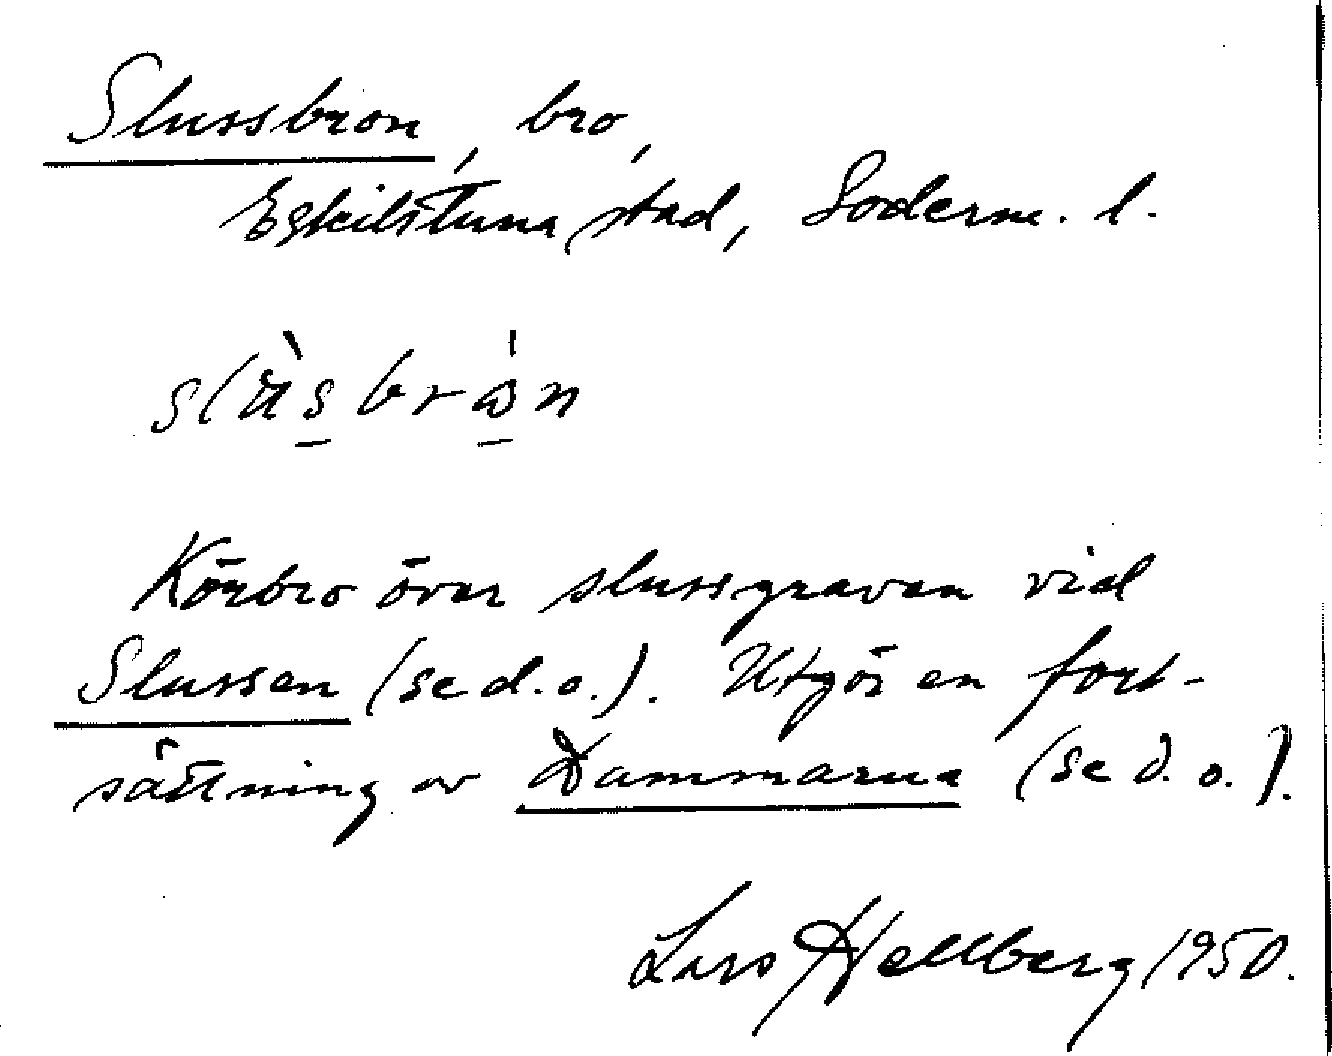 Slussbron, bro,
Eskilstuna stad, Söderm. l.
Körbro över slussgraven vid
Slussen (se d. o.). Utgör en fort-
sättning av Dammarna (se d. o.).
Lars Hellberg 1950.